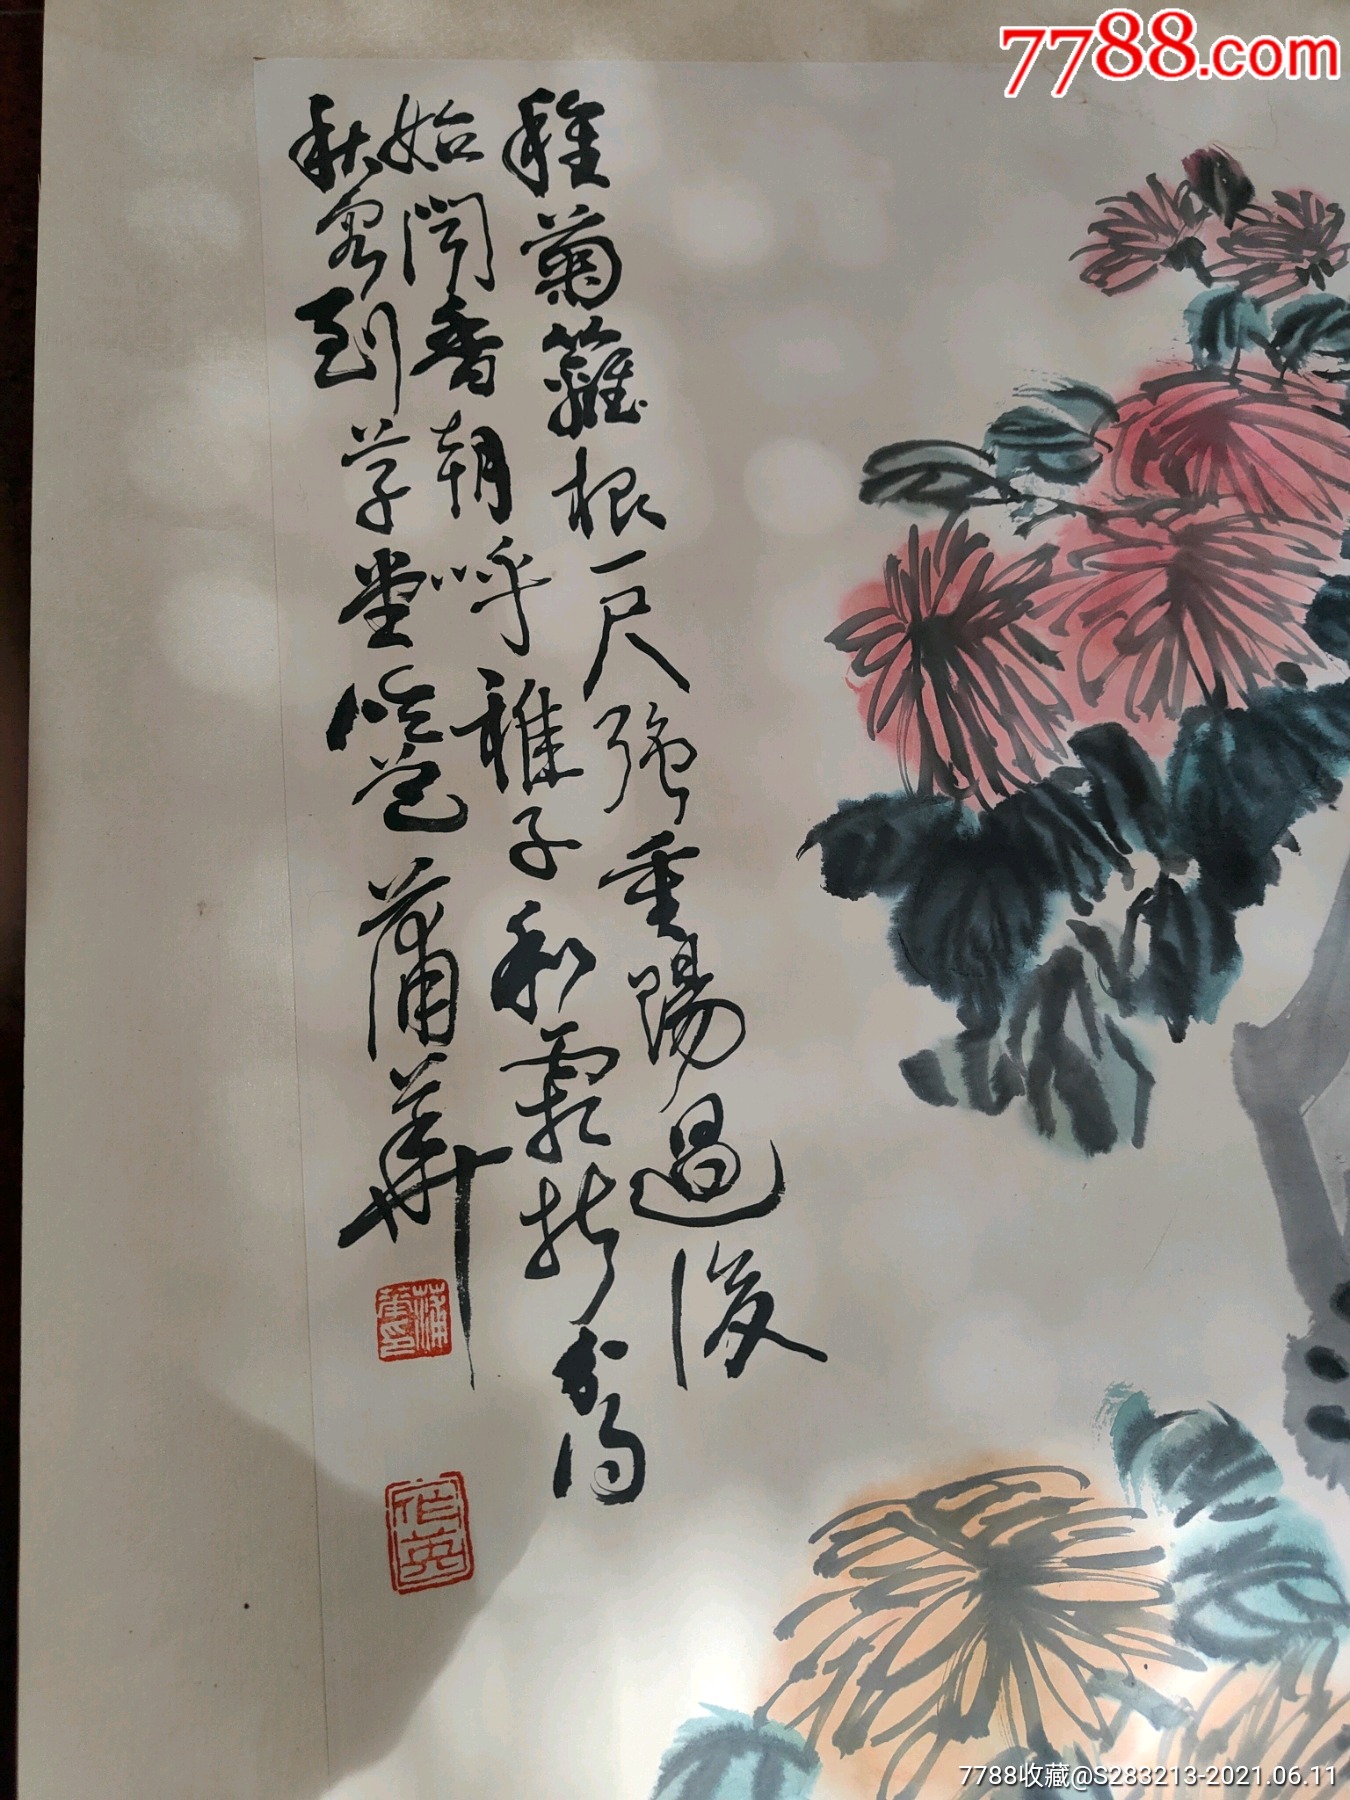 7788.com
種菊籬根一尺強重陽過後
始聞香朝呼稚子和霜折分得
秋容到草堂 作英 蒲華
蒲華印
7788收藏@S283213-2021.06.11